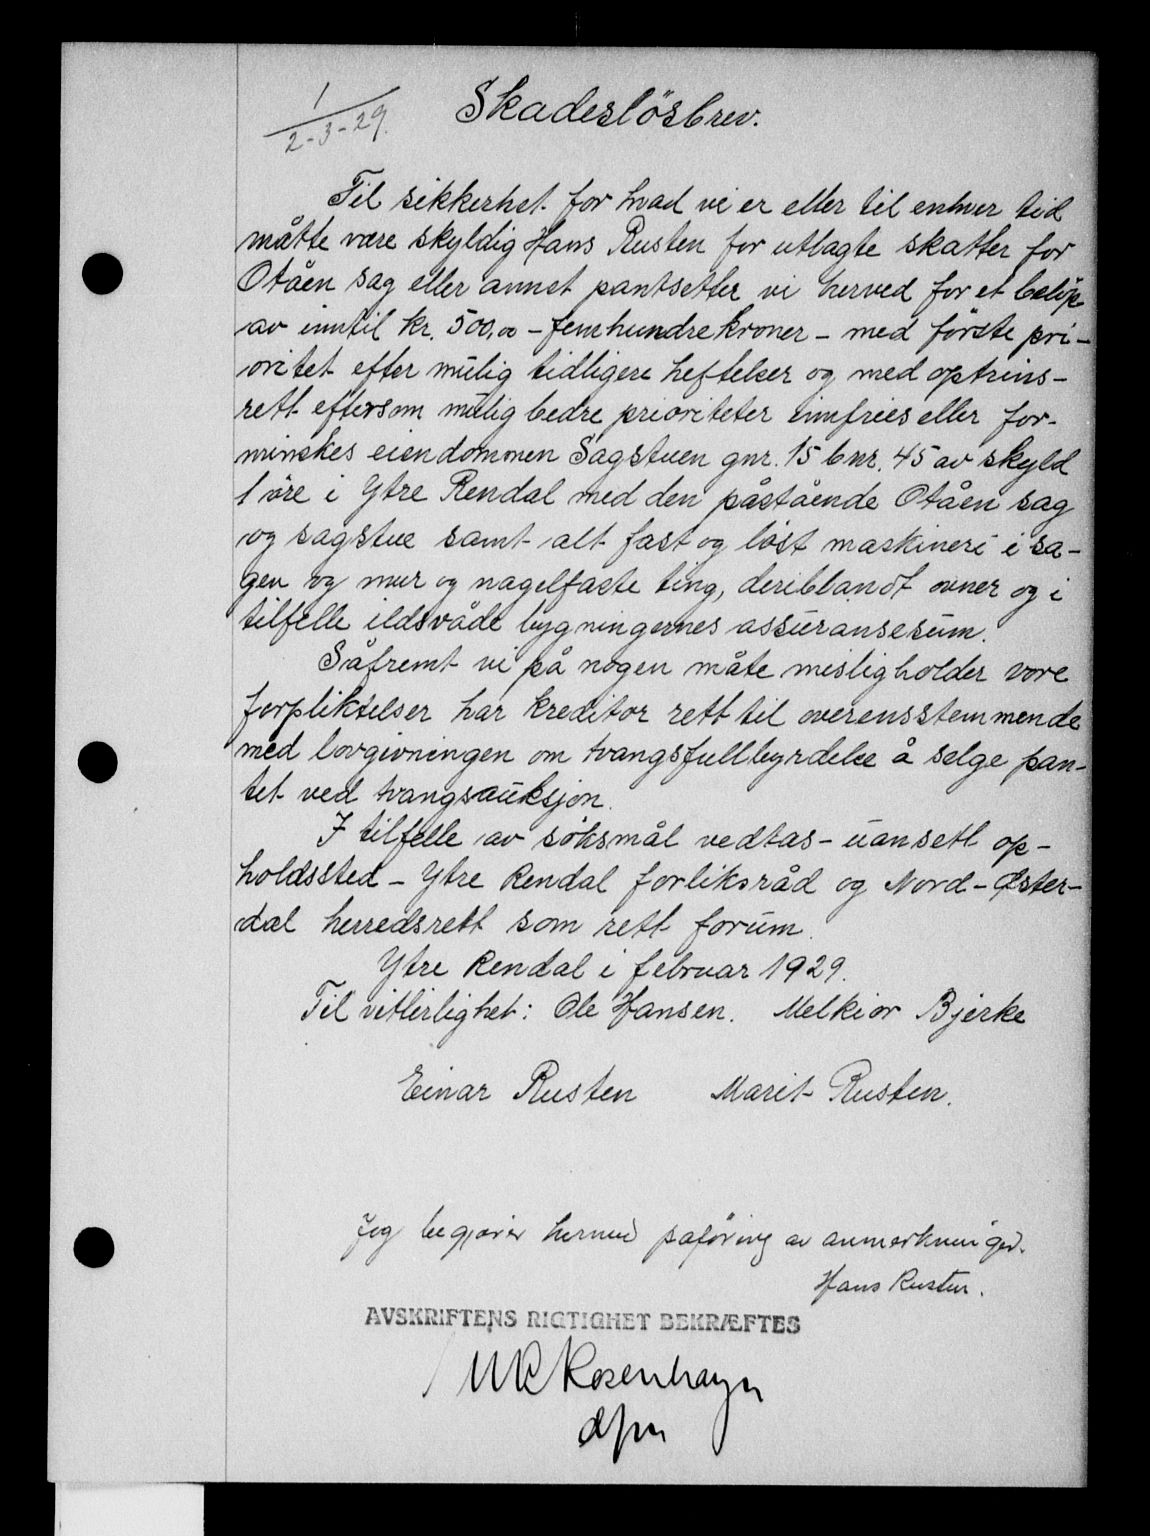 1
2-3-29.
Skadesløsbrev.
Til sikkerhet for hvad vi er eller til enhver tid
måtte være skyldig Hans Rusten for utlagte skatter for
Otåen sag eller annet pantsetter vi herved for et beløp
av inntil kr. 500,00 - femhundrekroner - med første pri-
oritet efter mulig tidligere heftelser og med optrins-
rett eftersom mulig bedre prioriteter innfries eller for-
minskes eiendommen Sagstuen gnr. 15 bnr. 45 av skyld
1 øre i Ytre Rendal med den påstående Otåen sag
og sagstue samt alt fast og løst maskineri i sa-
gen og mur og nagelfaste ting, deriblandt ovner og i
tilfelle ildsvåde bygningernes assuransesum.
Såfremt vi på nogen måte misligholder vore
forpliktelser har kreditor rett til overensstemmende
med lovgivningen om tvangsfullbyrdelse å selge pan-
tet ved tvangsauksjon.
I tilfelle av søksmål vedtas - uansett op-
holdssted - Ytre Rendal forliksråd og Nord-Øster-
dal herredsrett som rett forum.
Ytre Rendal i februar 1929.
Til vitterlighet: Ole Hansen. Melkior Bjerke
Einar Rusten Marit Rusten.
Jeg begjærer herved påføring av anmerkninger.
Hans Rusten.
AVSKRIFTENS RIGTIGHET BEKRÆFTES
Rosenhayn